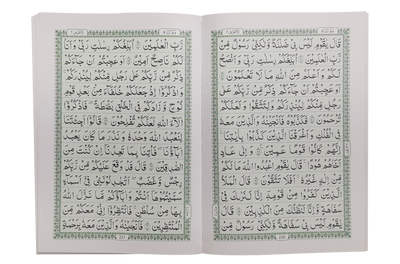 قَالَ يٰقَوْمِ لَيْسَ بِيْ ضَلٰلَةٌ وَّلٰكِنِّيْ رَسُوْلٌ مِّنْ
رَّبِّ الْعٰلَمِيْنَ اُبَلِّغُكُمْ رِسٰلٰتِ رَبِّيْ وَاَنْصَحُ
لَكُمْ وَاَعْلَمُ مِنَ اللّٰهِ مَا لَا تَعْلَمُوْنَ
اَوَعَجِبْتُمْ اَنْ جَآءَكُمْ ذِكْرٌ مِّنْ رَّبِّكُمْ عَلٰى
رَجُلٍ مِّنْكُمْ لِيُنْذِرَكُمْ وَلِتَتَّقُوْا وَلَعَلَّكُمْ
تُرْحَمُوْنَ فَكَذَّبُوْهُ فَاَنْجَيْنٰهُ وَالَّذِيْنَ مَعَهٗ
فِي الْفُلْكِ وَاَغْرَقْنَا الَّذِيْنَ كَذَّبُوْا بِاٰيٰتِنَا
اِنَّهُمْ كَانُوْا قَوْمًا عَمِيْنَ وَاِلٰى عَادٍ
اَخَاهُمْ هُوْدًا قَالَ يٰقَوْمِ اعْبُدُوا اللّٰهَ مَا لَكُمْ
مِّنْ اِلٰهٍ غَيْرُهٗ اَفَلَا تَتَّقُوْنَ قَالَ الْمَلَاُ
الَّذِيْنَ كَفَرُوْا مِنْ قَوْمِهٖٓ اِنَّا لَنَرٰىكَ فِيْ
سَفَاهَةٍ وَّاِنَّا لَنَظُنُّكَ مِنَ الْكٰذِبِيْنَ قَالَ
يٰقَوْمِ لَيْسَ بِيْ سَفَاهَةٌ وَّلٰكِنِّيْ رَسُوْلٌ مِّنْ
رَّبِّ الْعٰلَمِيْنَ اُبَلِّغُكُمْ رِسٰلٰتِ رَبِّيْ وَاَنَا
لَكُمْ نَاصِحٌ اَمِيْنٌ اَوَعَجِبْتُمْ اَنْ جَآءَكُمْ
ذِكْرٌ مِّنْ رَّبِّكُمْ عَلٰى رَجُلٍ مِّنْكُمْ لِيُنْذِرَكُمْ
وَاذْكُرُوْٓا اِذْ جَعَلَكُمْ خُلَفَآءَ مِنْۢ بَعْدِ قَوْمِ
نُوْحٍ وَّزَادَكُمْ فِي الْخَلْقِ بَصْۜطَةً فَاذْكُرُوْٓا
اٰلَآءَ اللّٰهِ لَعَلَّكُمْ تُفْلِحُوْنَ قَالُوْٓا اَجِئْتَنَا
لِنَعْبُدَ اللّٰهَ وَحْدَهٗ وَنَذَرَ مَا كَانَ يَعْبُدُ
اٰبَآؤُنَا فَاْتِنَا بِمَا تَعِدُنَآ اِنْ كُنْتَ مِنَ
الصّٰدِقِيْنَ قَالَ قَدْ وَقَعَ عَلَيْكُمْ مِّنْ رَّبِّكُمْ
رِجْسٌ وَّغَضَبٌ اَتُجَادِلُوْنَنِيْ فِيْٓ اَسْمَآءٍ
سَمَّيْتُمُوْهَآ اَنْتُمْ وَاٰبَآؤُكُمْ مَّا نَزَّلَ اللّٰهُ
بِهَا مِنْ سُلْطٰنٍ فَانْتَظِرُوْٓا اِنِّيْ مَعَكُمْ مِّنَ
الْمُنْتَظِرِيْنَ فَاَنْجَيْنٰهُ وَالَّذِيْنَ مَعَهٗ بِرَحْمَةٍ